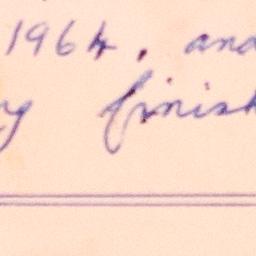 1964, and
finish